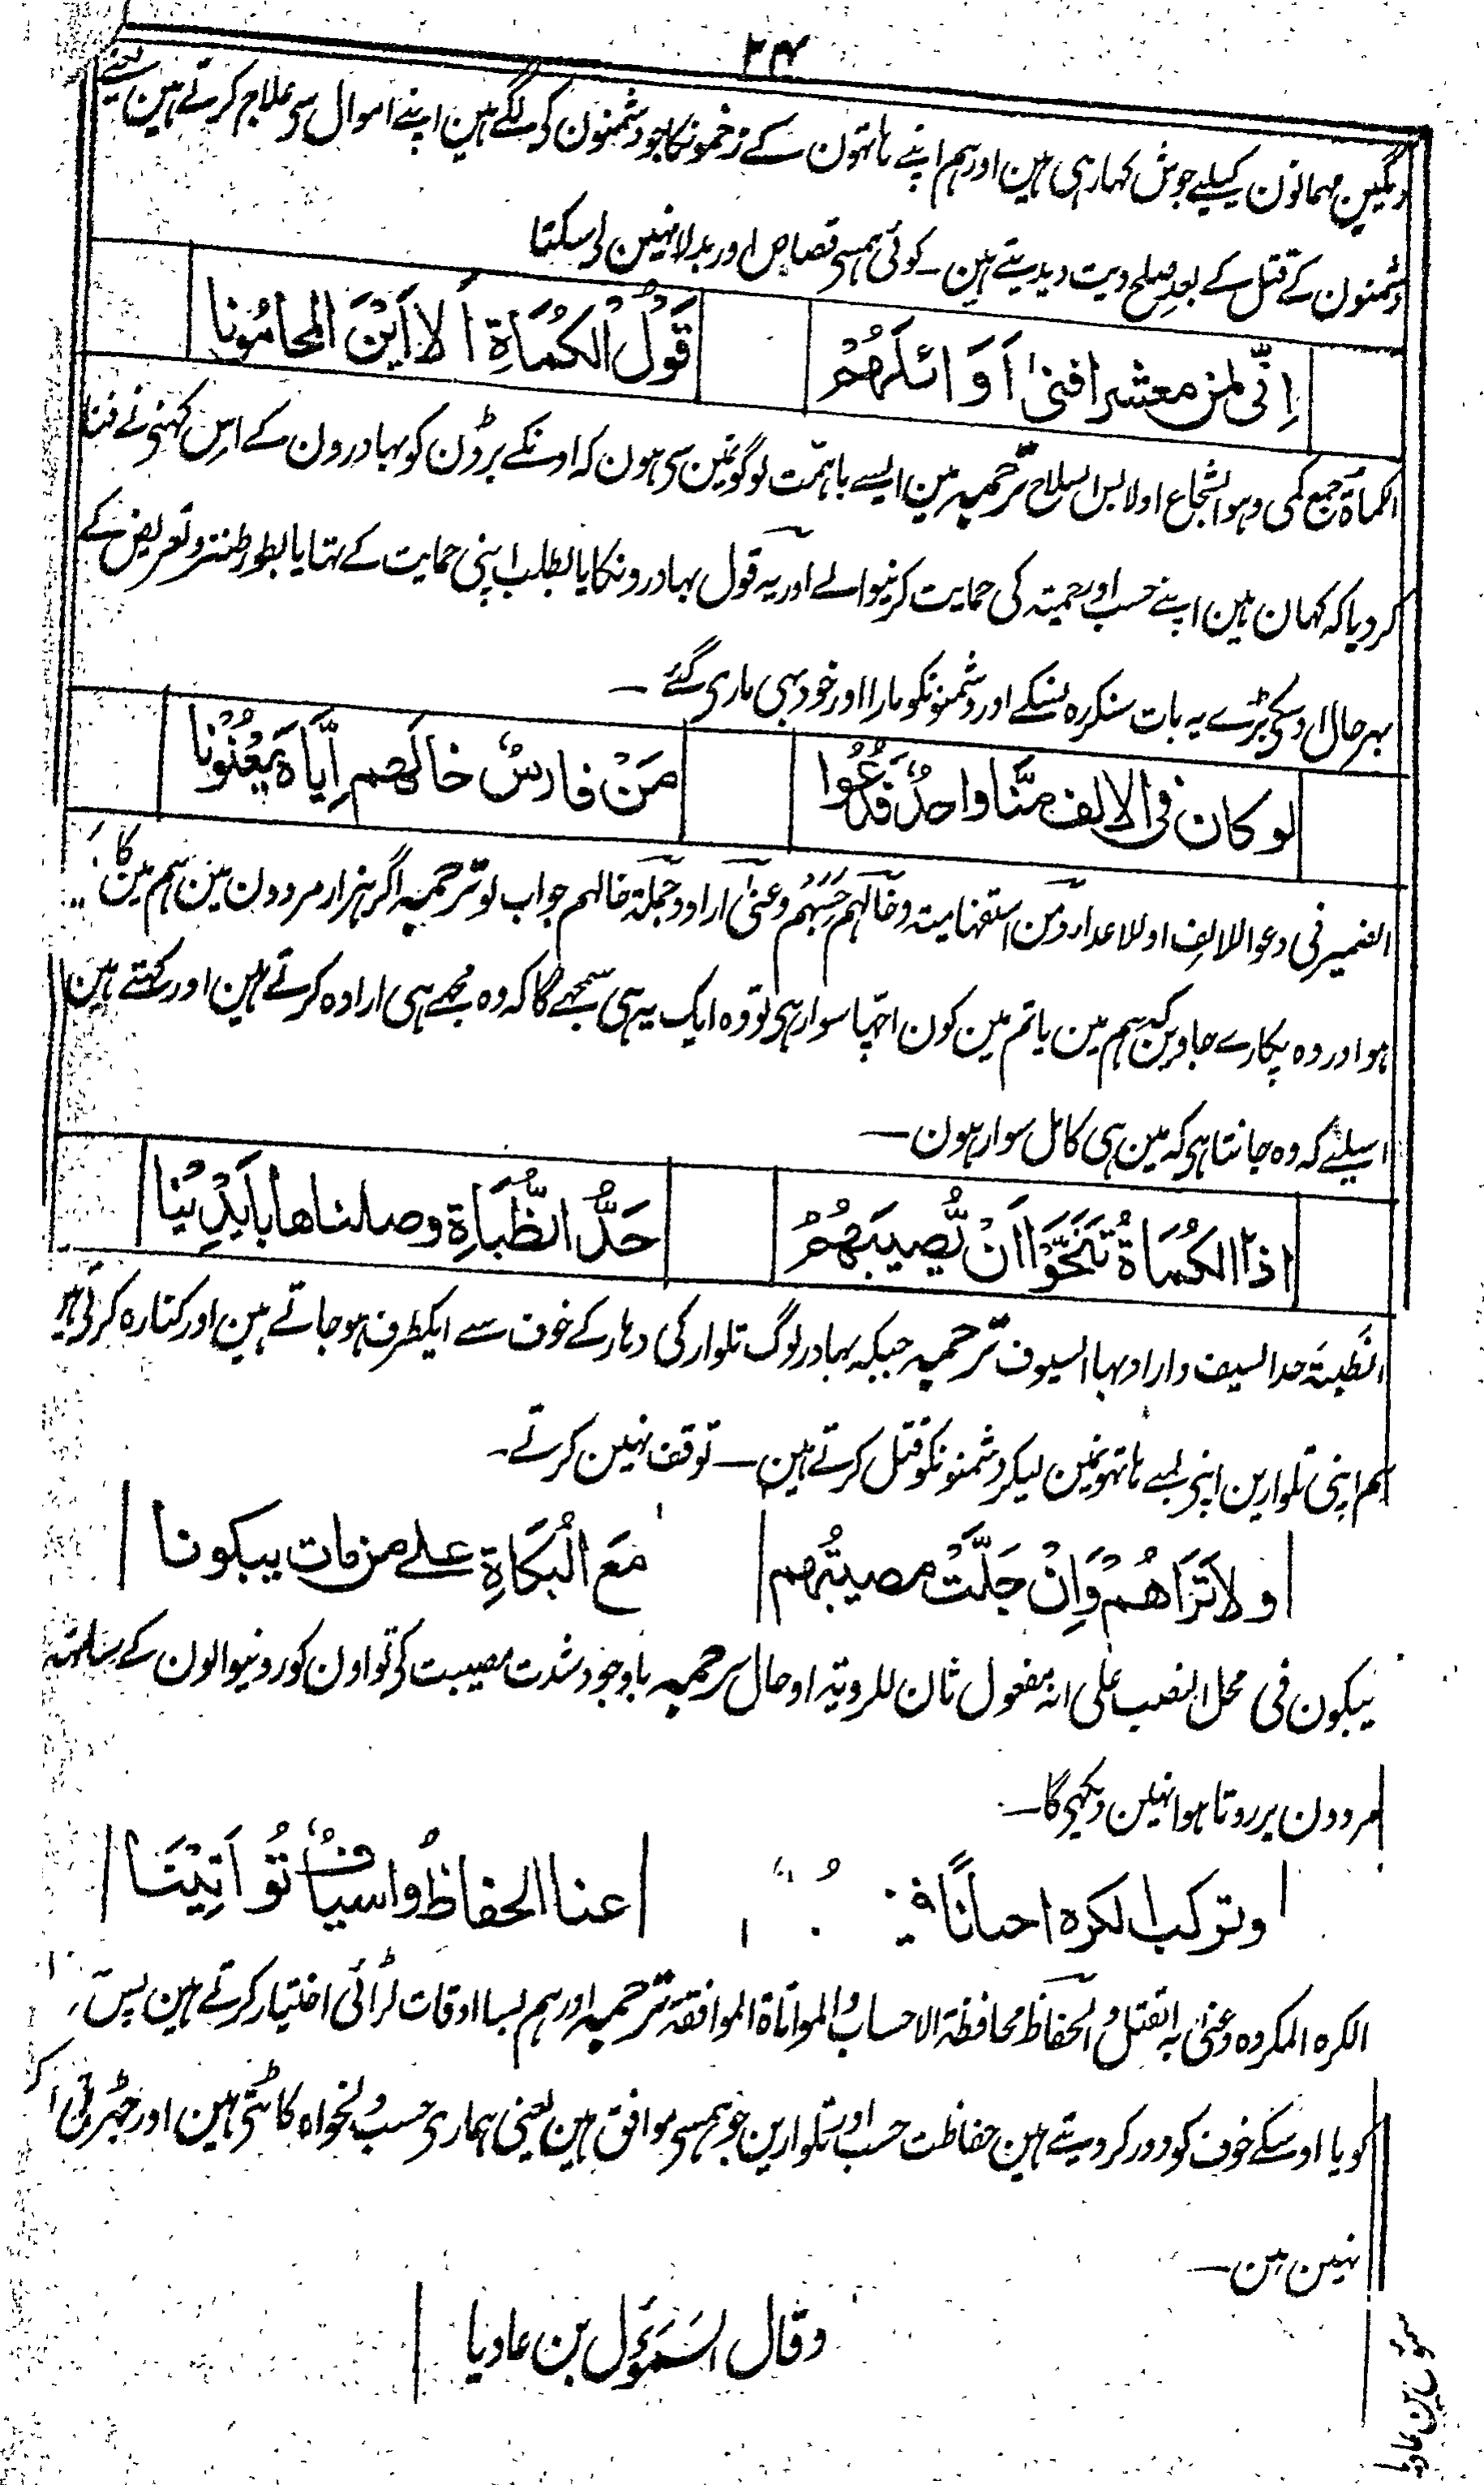 ۳۴
دیگین مہمانون کیلیے جوش کہارہی ہین اور ہم اپنے ہاتہون کے زخمونکا جو دشمنون کے لگے ہین اپنے اموال سی علاج کرتے ہین یعنے
دشمنون کے قتل کے بعد صلح دیت دیدیتے ہین۔ کوئی ہمسی قصاص اور بدلا نہین لی سکتا
اِنّی لمن معشر افنیٰ اَوَائلَهُمْ قَوْلُ الْكُمَاةِ اَلا اَيْنَ المحامُونا
الکماۃ جمع کمی وہو الشجاع او لابس السلاح ترجمہ مین ایسے باہمّت لوگونمین سی ہون کہ اونکے بڑون کو بہادرون کے اِس کہنی نے فنا
کردیا کہ کہان ہین اپنے حسب اور حمیتہ کی حمایت کرنیوالے اور یہ قول بہادرونکا یا بطلب اپنی حمایت کے تہا یا بطور طنز و تعریض کے
بہر حال اوسکی بڑے یہ بات سنکر رہ نسکے اور دشمنونکو مارا اور خود بہی ماری گئے ۔
لو كان فی الالف مِنَّا واحدٌ فَدَعُوْا مَنْ فارسٌ خالَهم اِيَّاهُ يَعْنُوْنا
الضمیر فی دعوا للالف او للاعداء ومن استفہامیتہ وخالہم حَسِبَہُم وعنیٰ اراد وجملۃ خالہم جواب لو ترجمہ اگر ہزار مردون مین ہم مین کا
ہو اور وہ پکارے جاوین کہ ہم مین یا تم مین کون اچہا سوار ہی تو وہ ایک یہ ہی سمجہے گا کہ وہ مجہے ہی ارادہ کرتے ہین اور کہتے ہین
اسیلئے کہ وہ جانتا ہی کہ مین ہی کامل سوار ہون ۔
اذا الكُمَاةُ تَنَحَّوْا اَنْ يُّصيبَهُمْ حَدُّ الظُّبَاةِ وصلناها بِاَيْدِيْنا
الظبتہ حد السیف واراد بہا السیوف ترجمہ جبکہ بہادر لوگ تلوار کی دہار کے خوف سے ایکطرف ہو جاتے ہین اور کنارہ کرتی ہین
ہم اپنی تلوارین اپنی لمبے ہاتہونمین لیکر دشمنونکو قتل کرتے ہین ۔ توقف نہین کرتے۔
ولا تَرَاهُمْ وَاِنْ جَلَّتْ مصيبتُهم مَعَ الْبُكَاةِ علے من مات يبكونا
یبکون فی محل النصب علی انہ مفعول ثان للرویتہ او حال ترجمہ باوجود شدت مصیبت کی تو اون کو رونیوالون کے ساتہ
مردون پر روتا ہوا نہین دیکہی گا۔
ونركب الكره احيانًا عنا الحفاظُ واسيافٌ تُوَاتِيْنَا
الکرہ المکروہ وعنیٰ بہ القتل والحفاظ محافظۃ الاحساب والمواتاۃ الموافقۃ ترجمہ اور ہم بسا اوقات لڑائی اختیار کرتے ہین پس
کو یا اوسکے خوف کو دور کر دیتے ہین حفاظت حسب اور تلوارین جو ہمسی موافق ہین یعنی ہماری حسب دلخواہ کاٹتی ہین اور
نہین ہین ۔
وقال السَّمَوْئَل بن عادیا
سموئل بن عادیا